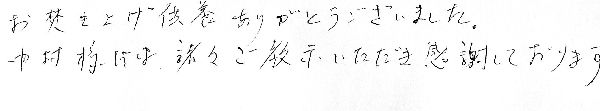 お焚き上げ供養ありがとうございました。
中村様には、諸々ご教示いただき感謝しております